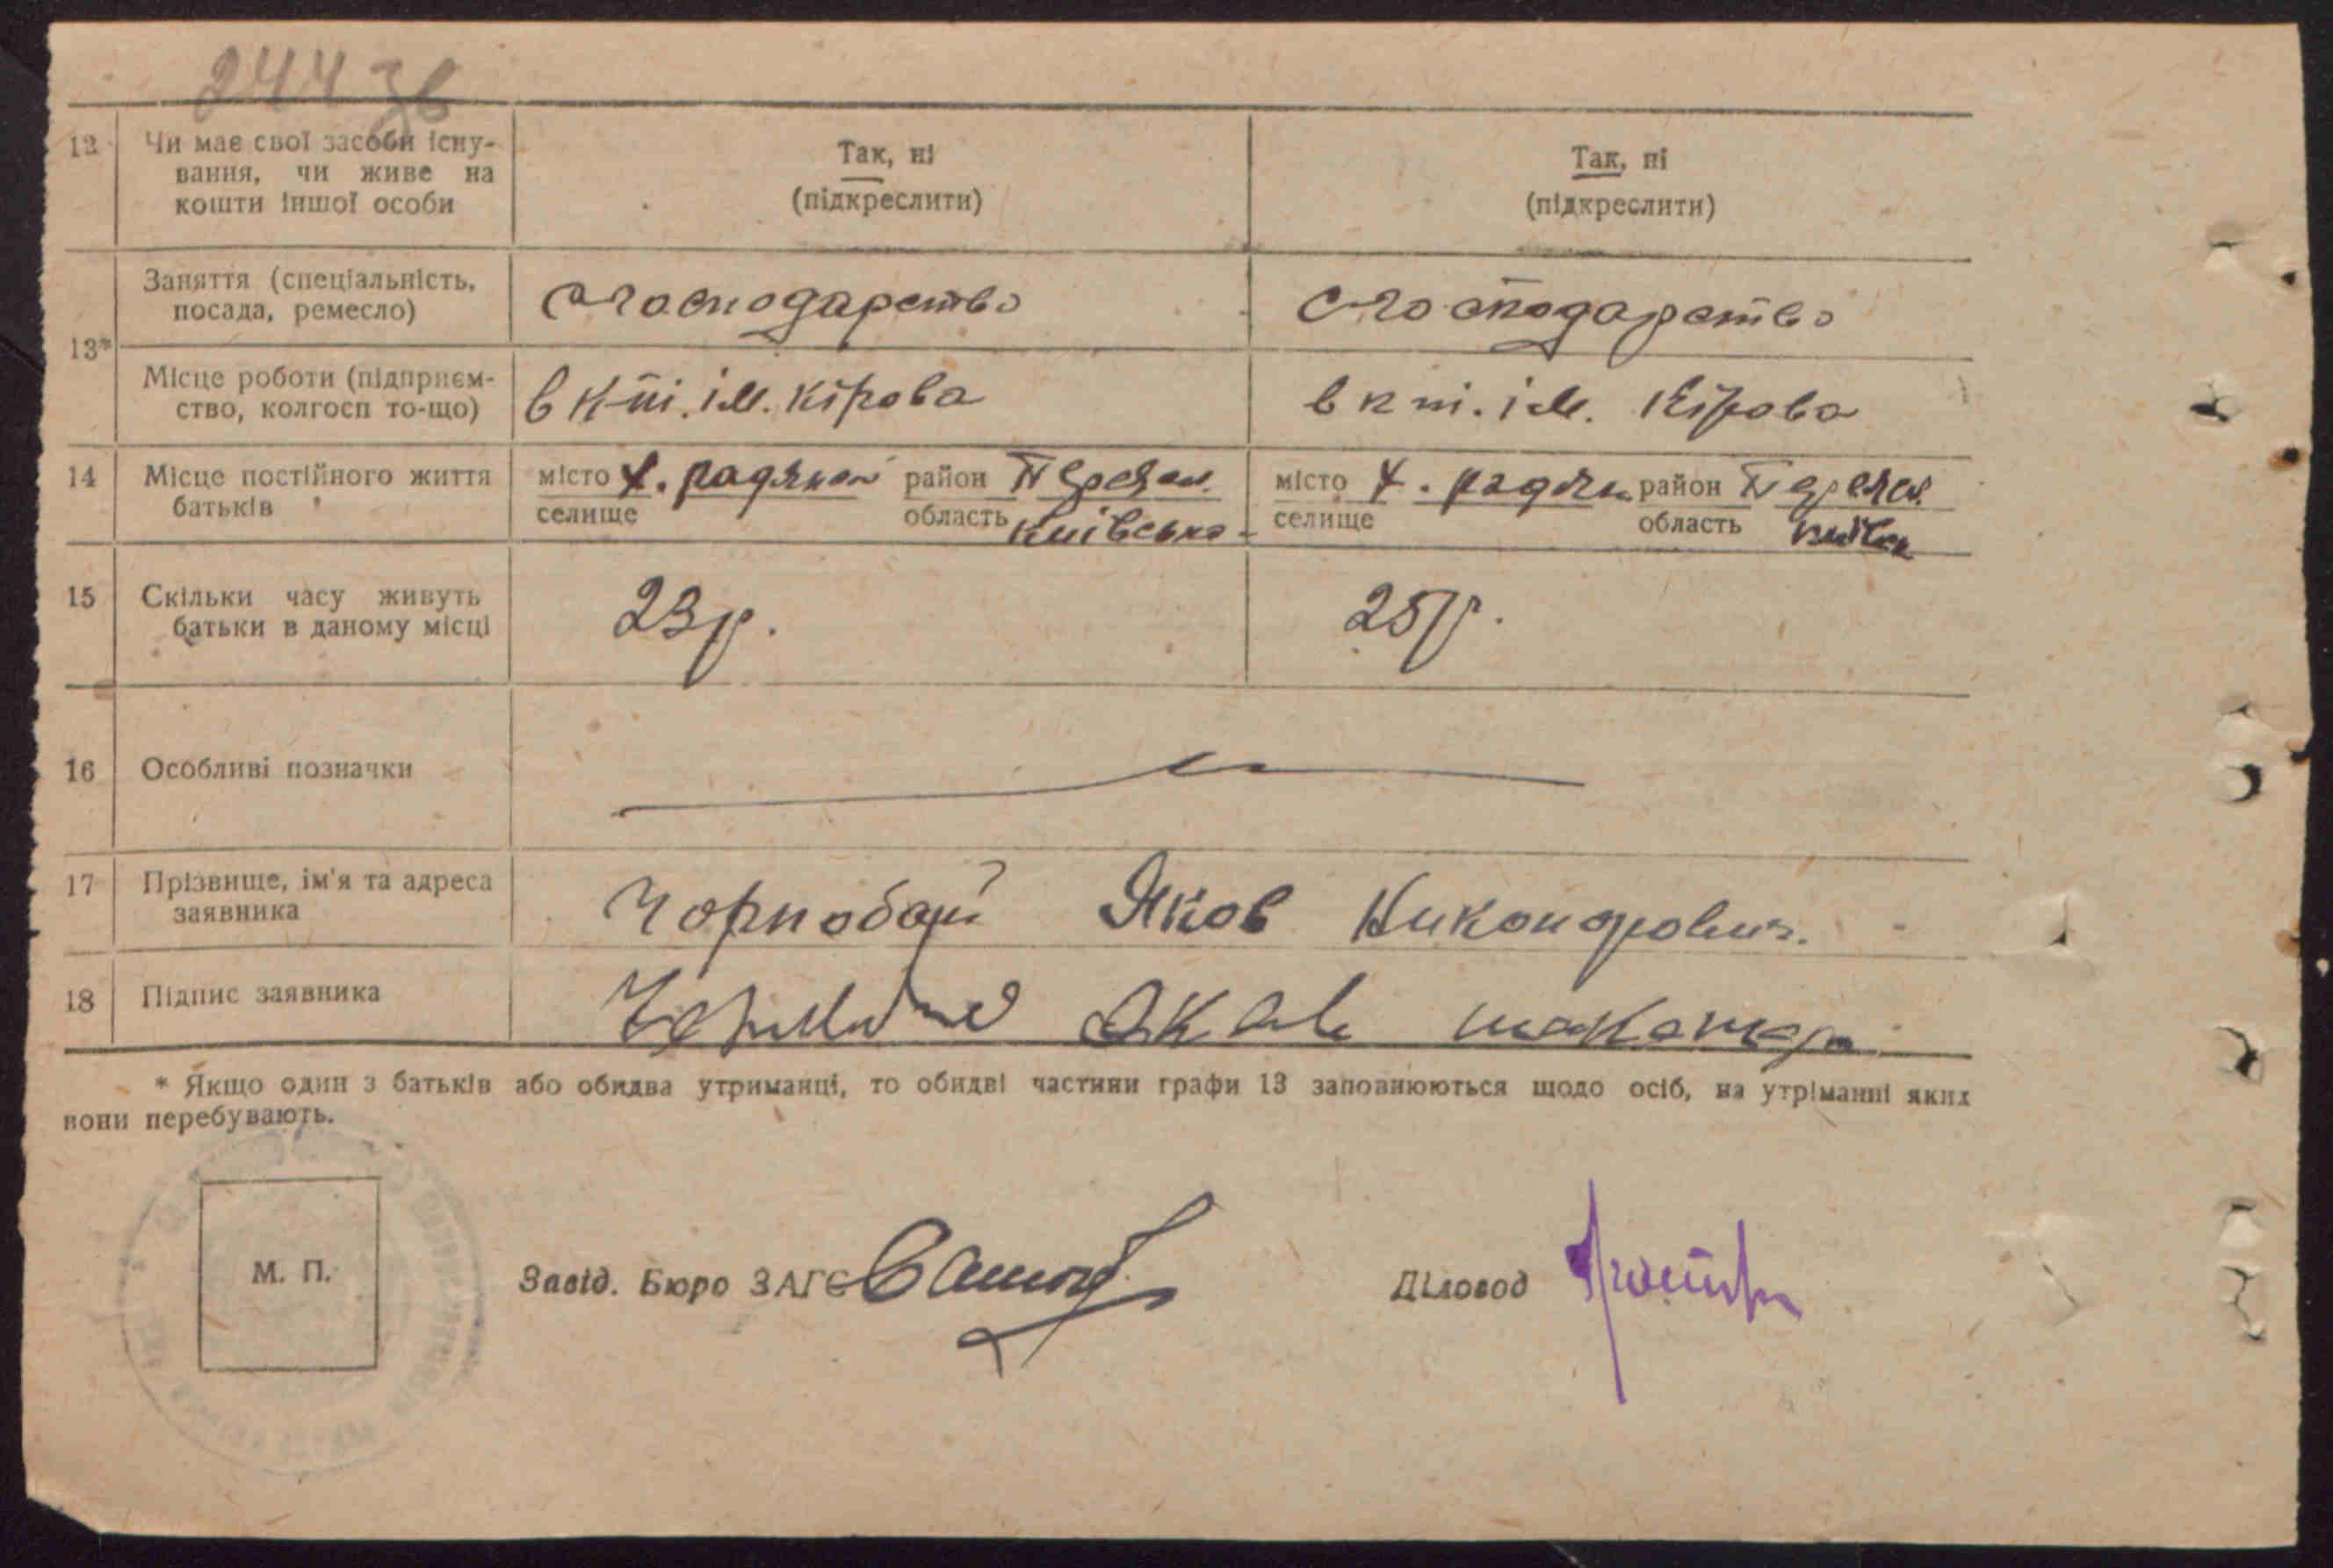 244 зв
12 Чи має свої засоби існу-
вання, чи живе на
кошти іншої особи
Так, ні
(підкреслити)
Так, ні
(підкреслити)
13*
Заняття (спеціальність,
посада, ремесло)
с-господарство
с-господарство
Місце роботи (підприєм-
ство, колгосп то-що)
в к-ті. ім. Кірова
в к ті. ім. Кірова
14 Місце постійного життя
батьків
місто х. район
селище область Київська
місто х. район
селище область
15 Скільки часу живуть
батьки в даному місці
23 р.
25 р.
16 Особливі позначки
17 Прізвище, ім'я та адреса
заявника
Чорнобай Яков Никондрович.
18 Підпис заявника
* Якщо один з батьків або обидва утриманці, то обидві частини графи 13 заповнюються щодо осіб, на утріманні яких
вони перебувають.
М. П.
Завід. Бюро ЗАГС
Діловод